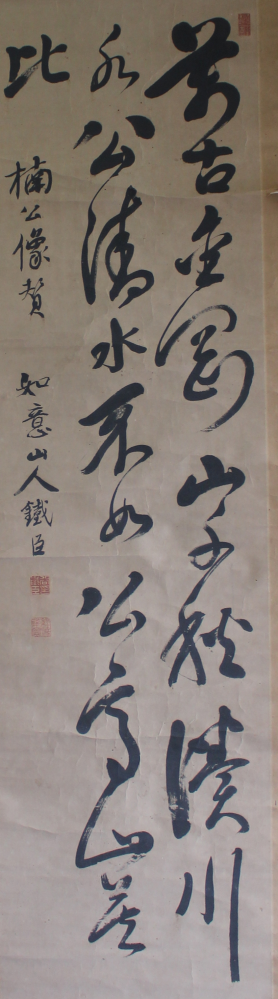 萬古金剛山千秋湊川
水公清水不如公高山莫
比
楠公像賛 如意山人鐵臣